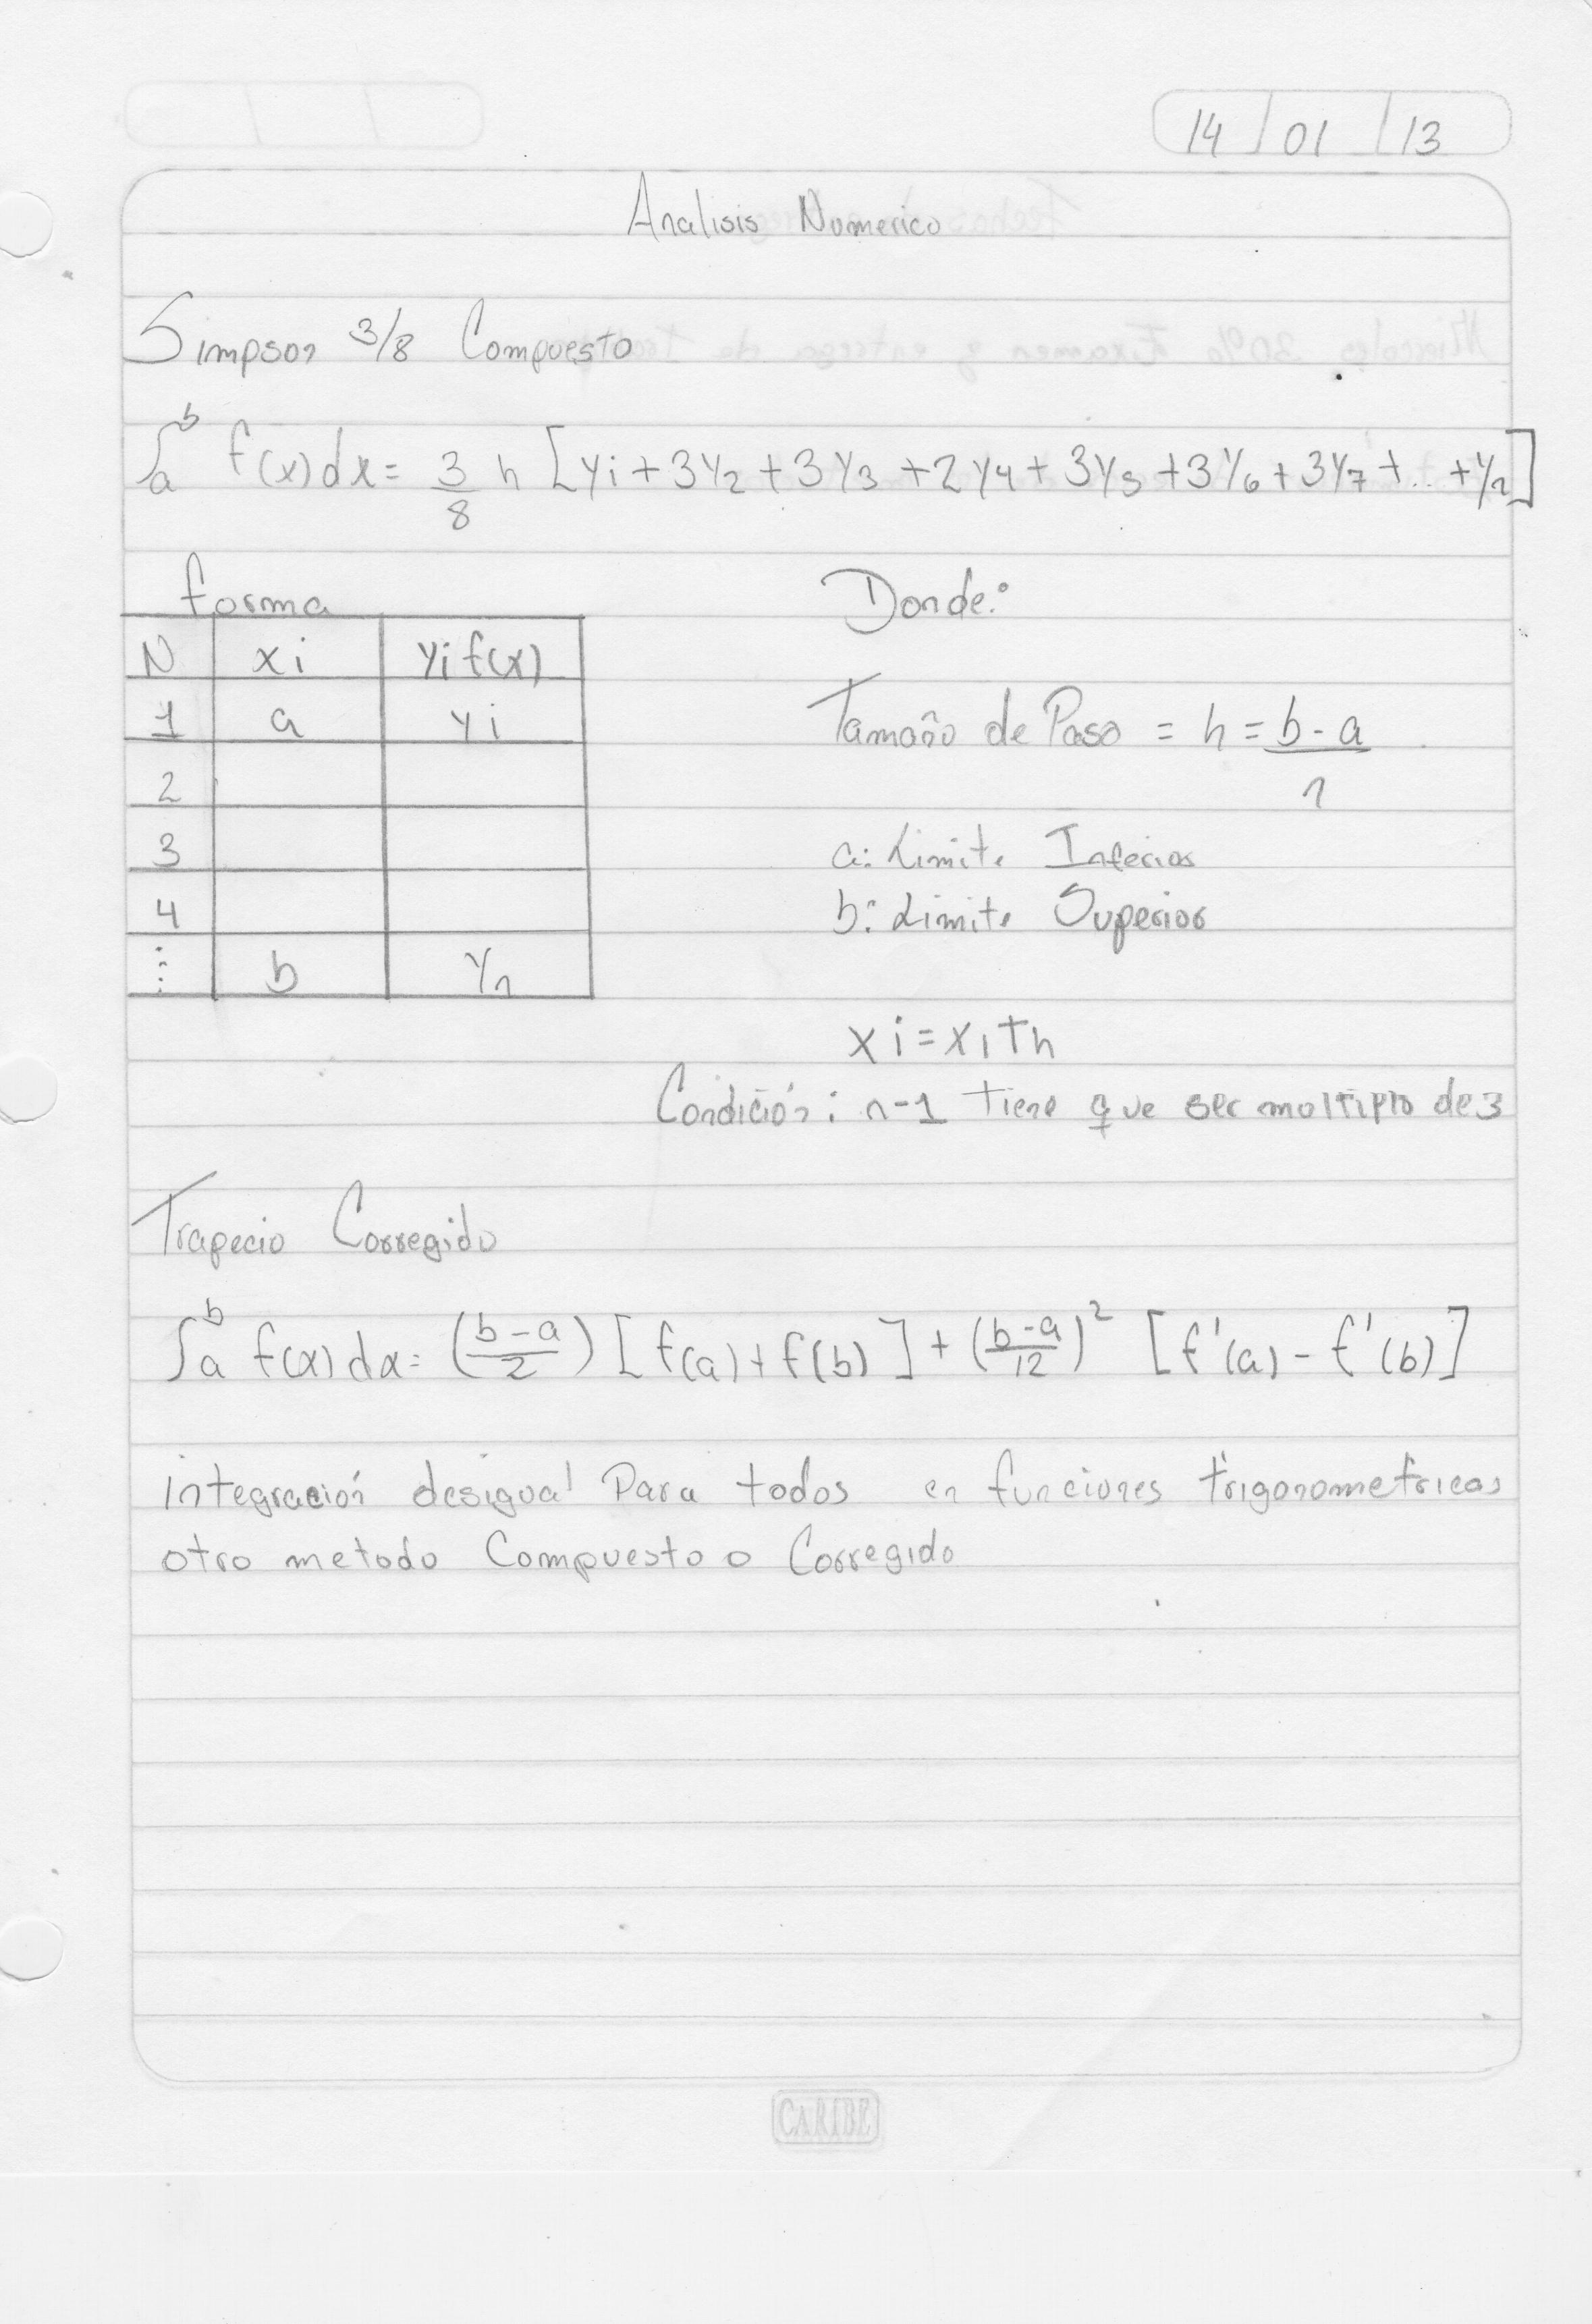 14 | 01 | 13
Analisis Numerico
Simpson 3/8 Compuesto
∫ₐᵇ f(x)dx = 3/8 h [yi + 3y₂ + 3y₃ + 2y₄ + 3y₅ + 3y₆ + 3y₇ + .. + yn]
forma
Donde:
N xi yi f(x)
1 a yi
2
3
4
⋮ b yn
Tamaño de Paso = h = b - a / n
a: Limite Inferior
b: Limite Superior
xi = x₁ + h
Condición: n-1 tiene que ser multiplo de 3
Trapecio Corregido
∫ₐᵇ f(x)dx = (b-a/2) [f(a) + f(b)] + (b-a/12)² [f'(a) - f'(b)]
integración desigual Para todos en funciones trigonometricas
otro metodo Compuesto o Corregido
CARIBE